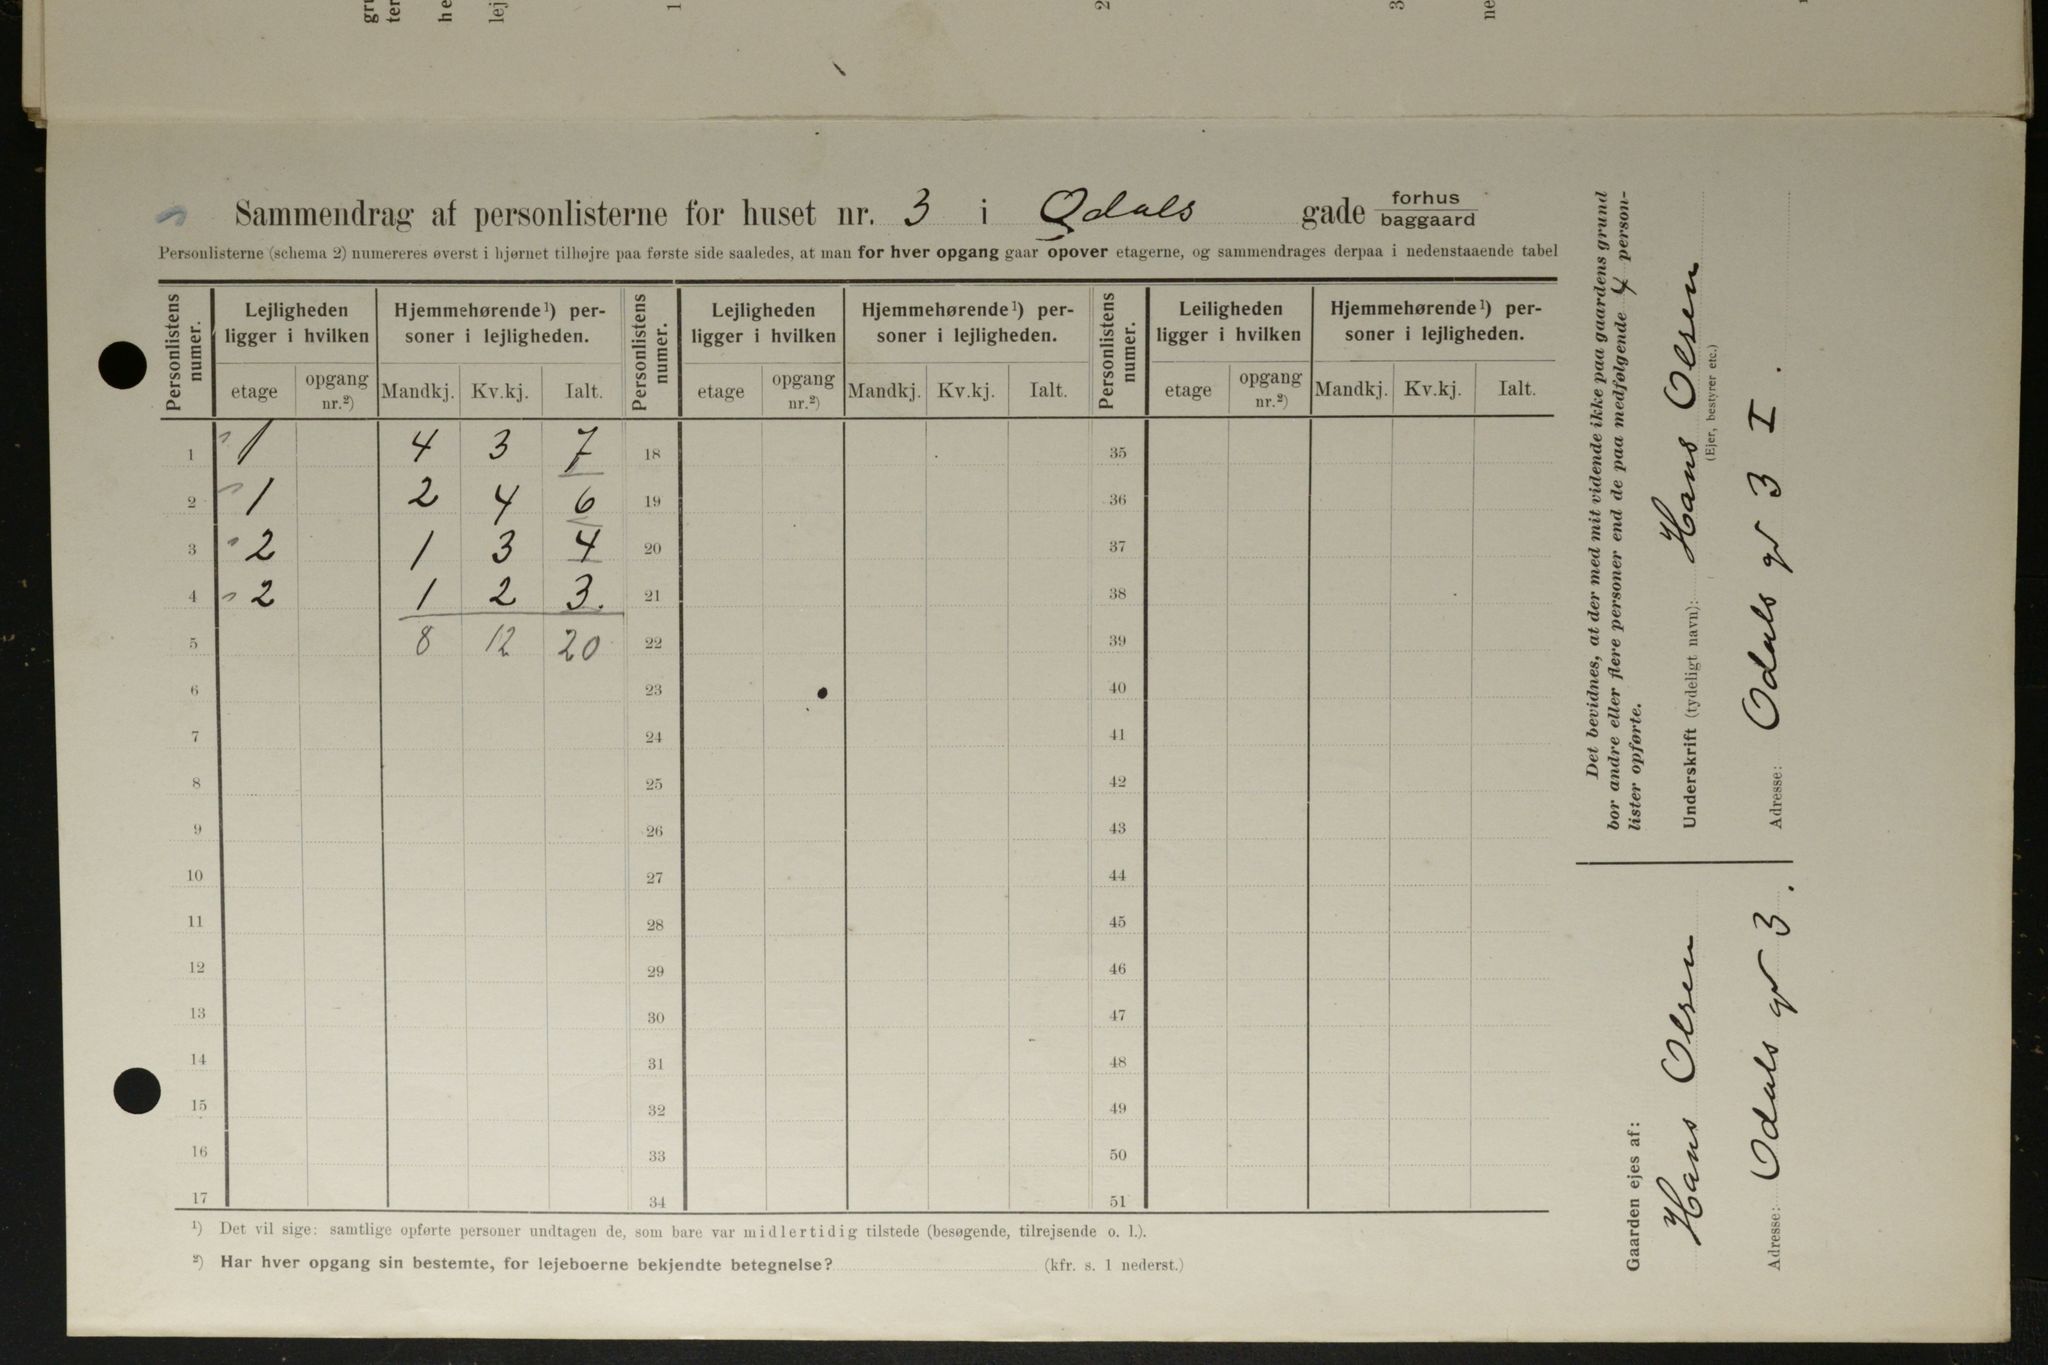 Sammendrag af personlisterne for huset nr. 3 i Odals gade forhus baggaard
Personlisterne (schema 2) numereres øverst i hjørnet tilhøjre paa første side saaledes, at man for hver opgang gaar opover etagerne, og sammendrages derpaa i nedenstaaende tabel
Personlistens numer. Lejligheden ligger i hvilken Hjemmehørende ¹) personer i lejligheden. Personlistens numer. Lejligheden ligger i hvilken Hjemmehørende ¹) personer i lejligheden. Personlistens numer. Leiligheden ligger i hvilken Hjemmehørende ¹) personer i lejligheden.
etage opgang nr.²) Mandkj. Kv.kj. Ialt. etage opgang nr.²) Mandkj. Kv.kj. Ialt. etage opgang nr.²) Mandkj. Kv.kj. Ialt.
1 1 4 3 7 18 35
2 1 2 4 6 19 36
3 2 1 3 4 20 37
4 2 1 2 3. 21 38
5 8 12 20 22 39
6 23 40
7 24 41
8 25 42
9 26 43
10 27 44
11 28 45
12 29 46
13 30 47
14 31 48
15 32 49
16 33 50
17 34 51
¹) Det vil sige: samtlige opførte personer undtagen de, som bare var midlertidig tilstede (besøgende, tilrejsende o. l.).
²) Har hver opgang sin bestemte, for lejeboerne bekjendte betegnelse? (kfr. s. 1 nederst.)
Det bevidnes, at der med mit vidende ikke paa gaardens grund
bor andre eller flere personer end de paa medfølgende 4 person-
lister opførte.
Underskrift (tydeligt navn): Hans Olsen
(Ejer, bestyrer etc.)
Adresse: Odals gd 3 I.
Gaarden ejes af:
Hans Olsen
Adresse: Odals gd 3.